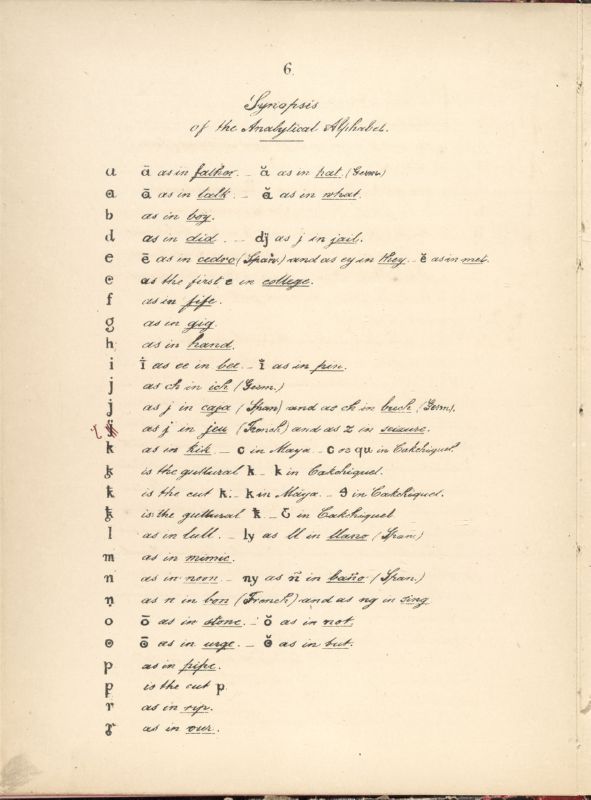 6.
Synopsis
of the Analytical Alphabet.
a ā as in father. – ă as in hat. (Germ.)
ɐ ɐ̄ as in talk. – ɐ̆ as in what.
b as in boy.
d as in did. – dj̈ as j in jail.
e ē as in cedro (Span.) and as ey in they. – ĕ as in met.
e as the first e in college.
f as in fife.
g as in gig.
h as in hand.
i ī as ee in bee. – ĭ as in pin.
j as ch in ich (Germ.)
j as j in caja (Span) and as ch in buch (Germ).
j̈ as j in jeu (French) and as z in seizure.
k as in kik – c in Maya – c or qu in Cakchiquel.
ꝁ is the guttural k – k in Cakchiquel.
ꝁ is the cut k. – k in Maya. – ɛ in Cakchiquel.
ꝁ is the guttural ꝁ – in Cakchiquel
l as in lull. – ly as ll in llano (Span.)
m as in mimic.
n as in noon – ny as ñ in baño (Span.)
ṇ as n in bon (French) and as ng in sing
o ō as in stone. – ŏ as in not.
ɵ ɵ̄ as in urge. – ɵ̆ as in but.
p as in pipe.
ꝑ is the cut p.
r as in rip.
ɼ as in our.